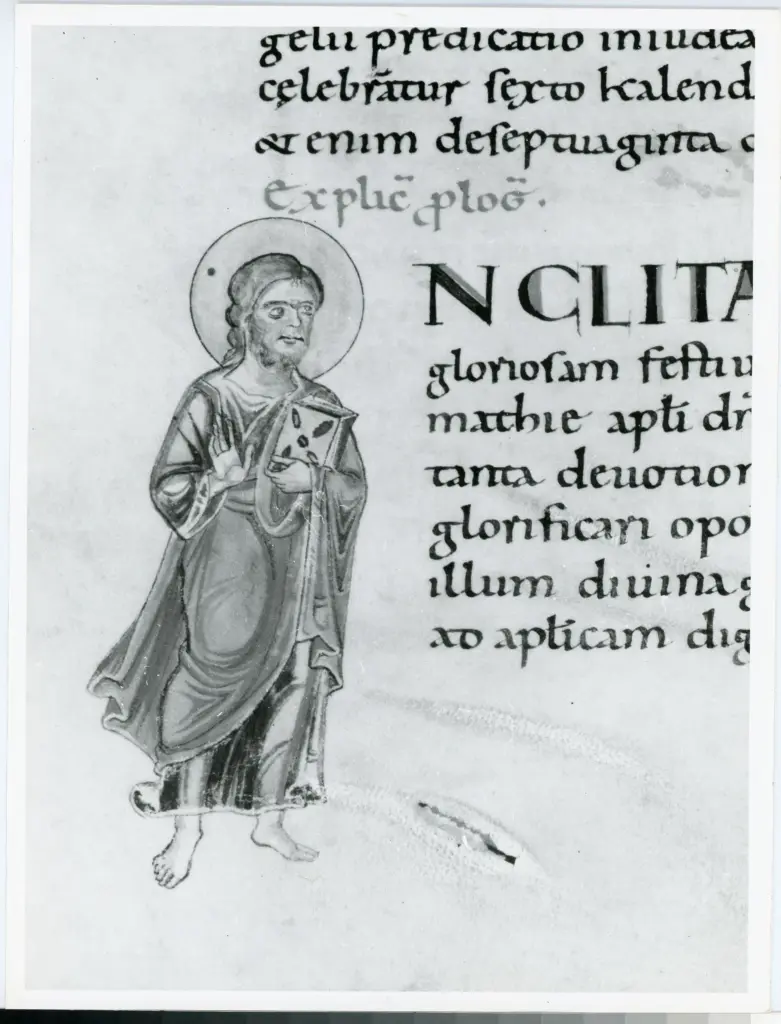 gelii predicatio in iudea
cęlebrāatur sexto kalend
& enim de septuaginta
Explic̄ ꝓloḡ.
NCLITA
gloriosam festiu
mathie apl̄i dn̄
tanta deuotion
glorificari opo
illum diuina g
ad apl̄icam dig